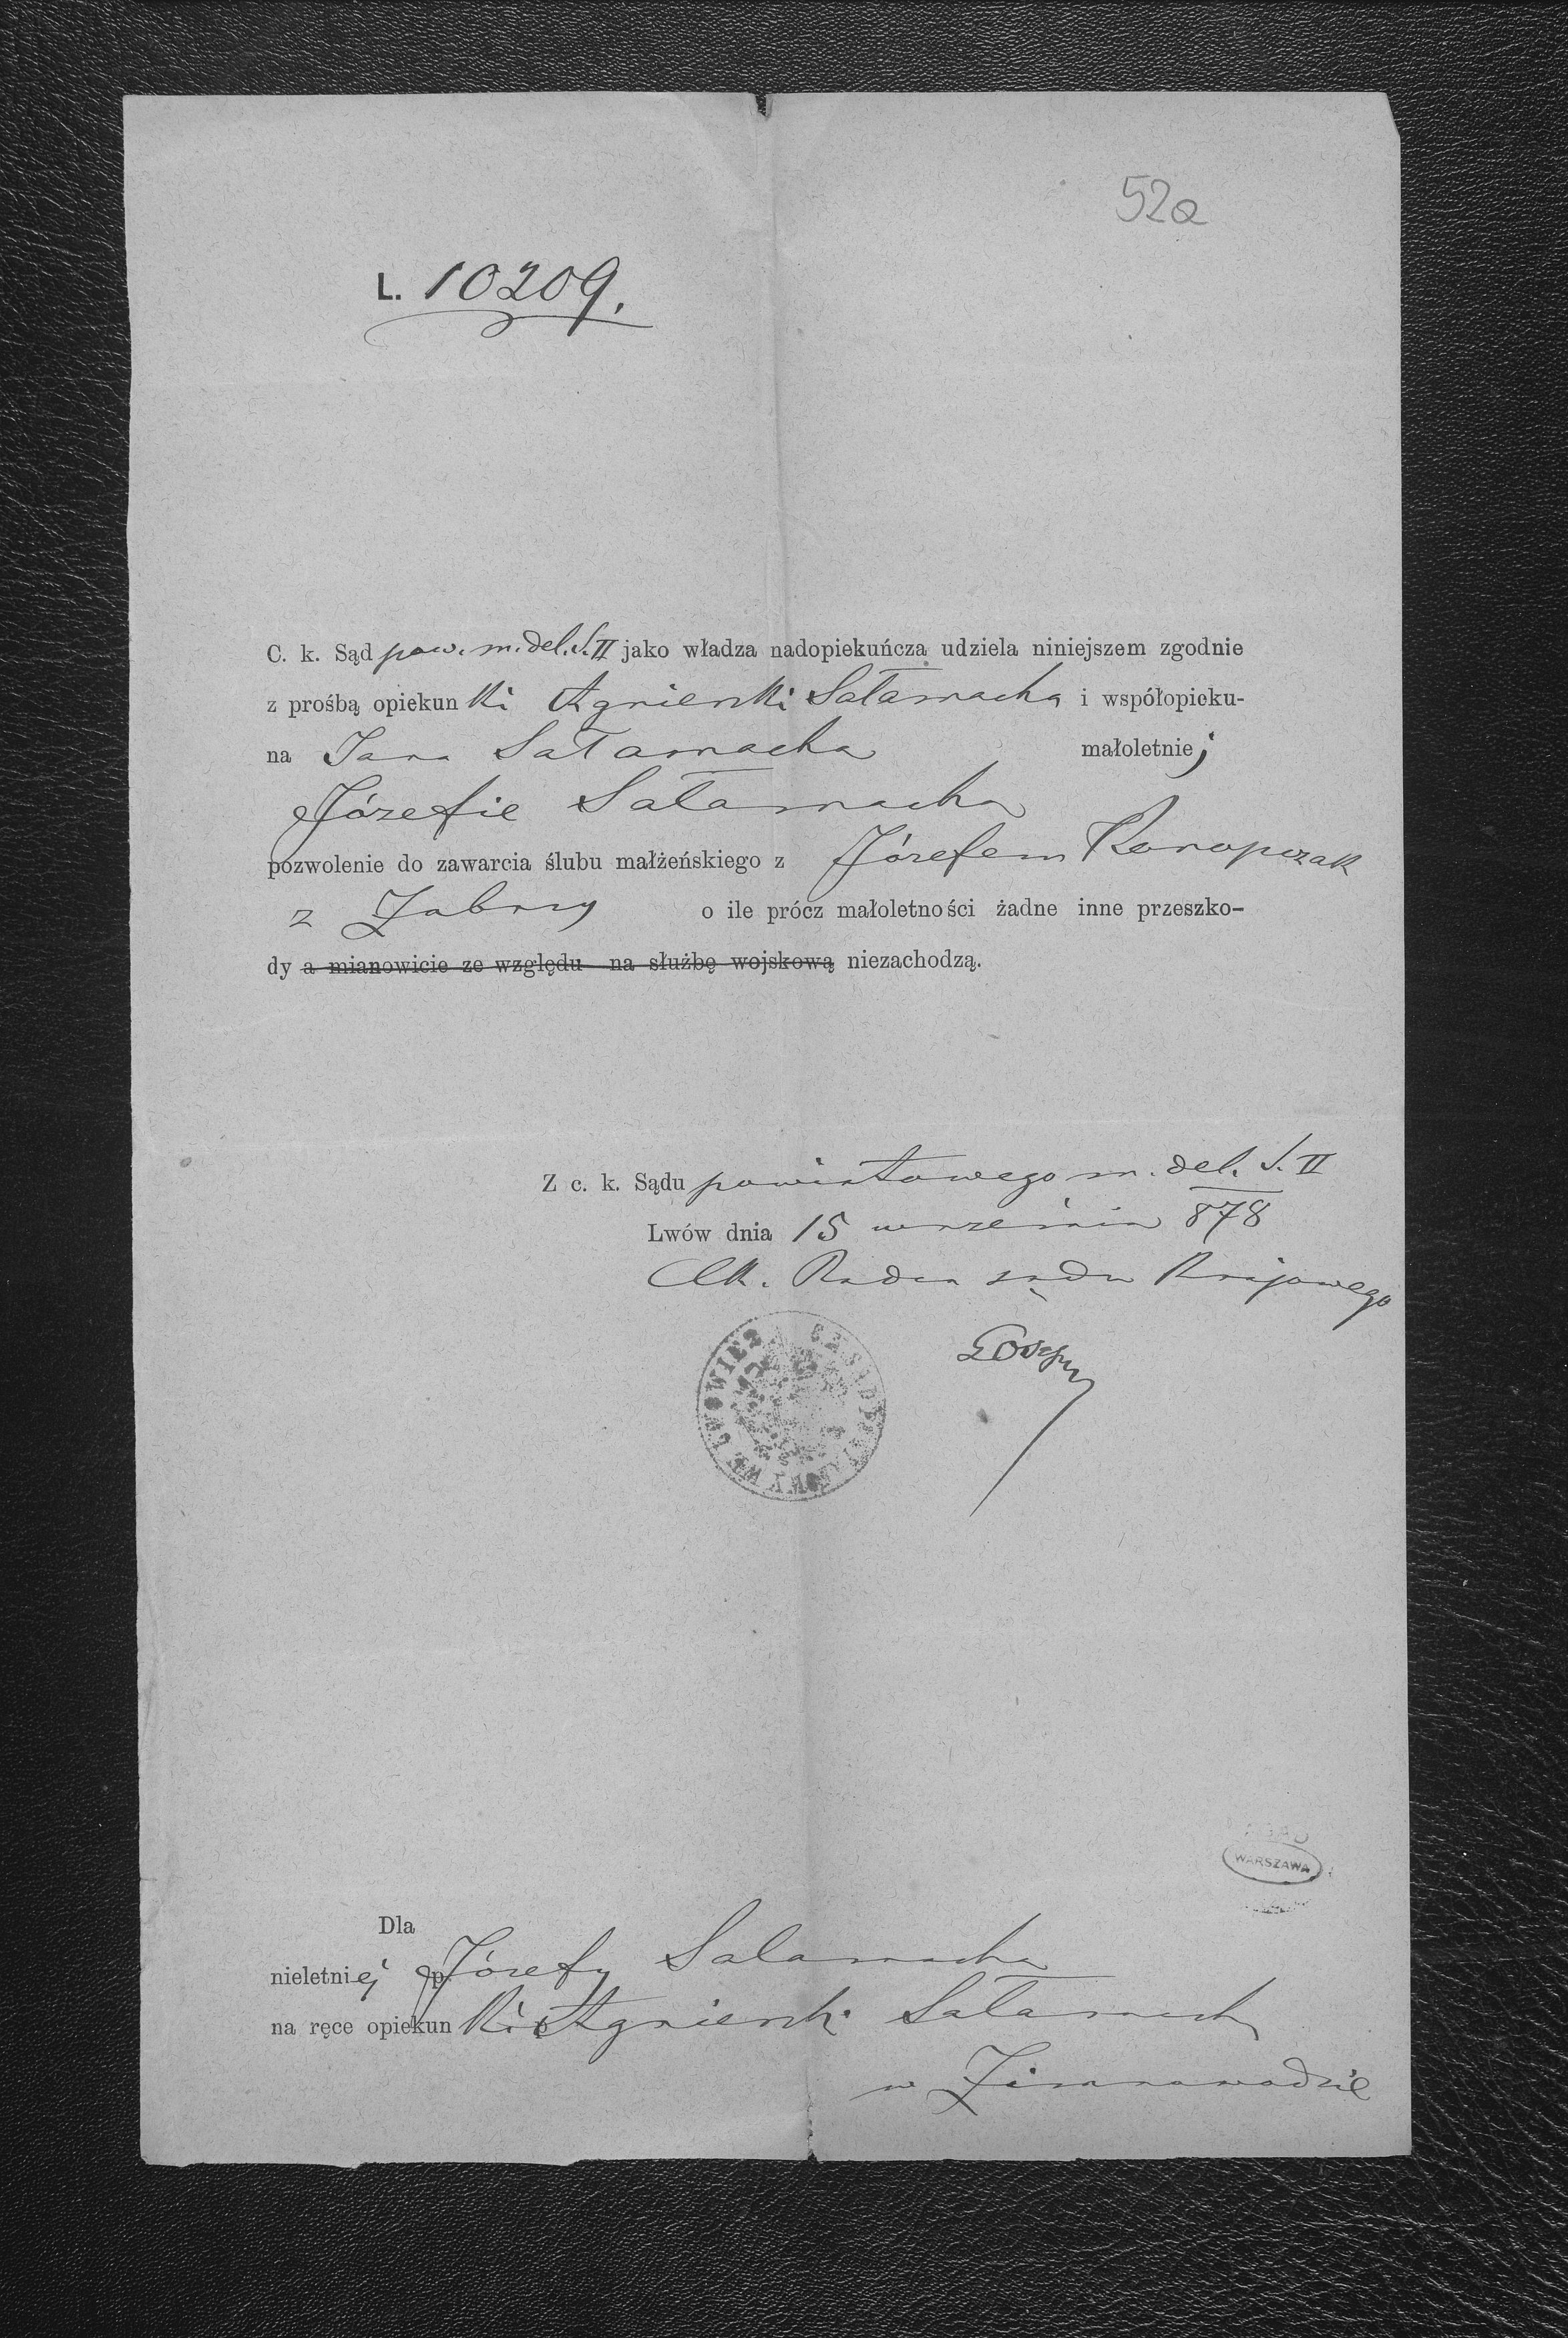 52a
L. 10209.
C. k. Sąd pow. m. del. S. II jako władza nadopiekuńcza udziela niniejszem zgodnie
z prośbą opiekunki Agnieszki Sałamacha i współopieku-
na Jana Sałamacha małoletniej
Józefie Sałamacha
pozwolenie do zawarcia ślubu małżeńskiego z Józefem Konopczak
z Zabrzy o ile prócz małoletności żadne inne przeszko-
dy a mianowicie ze względu na służbę wojskową niezachodzą.
Z c. k. Sądu powiatowego m. del. S. II
Lwów dnia 15 września 878
Ck. Radca sądu krajowego
WE LWOWIE
WARSZAWA
Dla
nieletniéj p. Józefy Salamacha
na ręce opiekunki Agnieszki Sałamacha
w Zimnawodzie